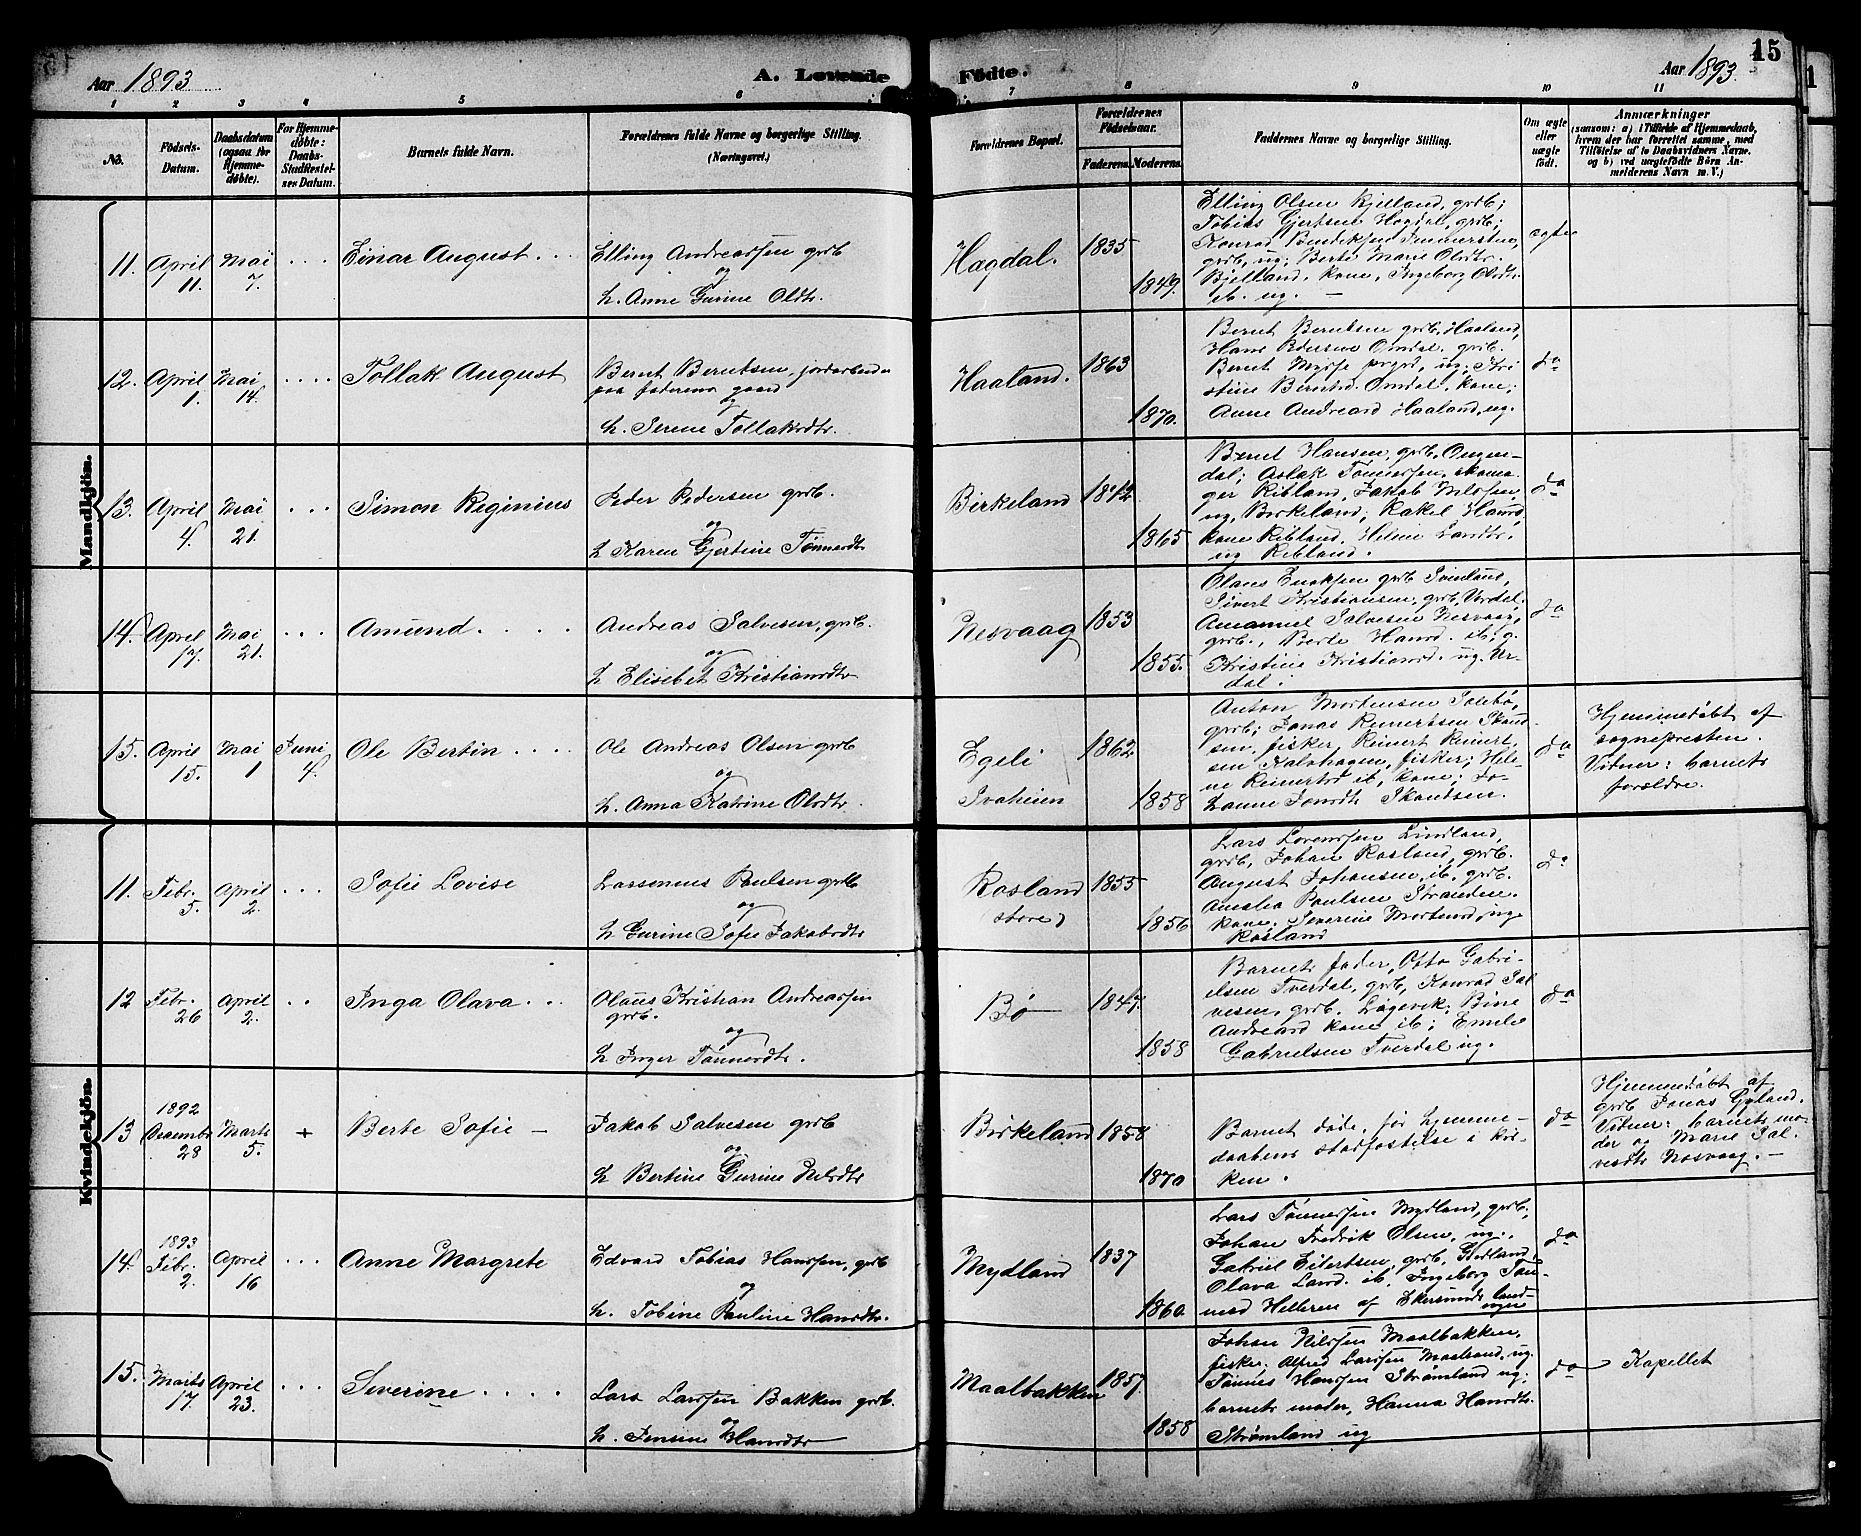 Aar 1893
A. Levende Fødte.
Aar 1893.
15
1 2 3 4 5 6 7 8 9 10 11
No.
Fødsels-Datum.
Daabsdatum (ogsaa for Hjemme-døbte).
For Hjemme-døbte: Daabs-Stadfæstel-ses Datum.
Barnets fulde Navn.
Forældrenes fulde Navne og borgerlige Stilling. (Næringsvei.)
Forældrenes Bopæl.
Forældrenes Fødselsaar.
Faderens. Moderens.
Faddernes Navne og borgerlige Stilling.
Om ægte eller uægte født.
Anmærkninger
(saasom: a) i Tilfælde af Hjemmedaab,
hvem der har forrettet samme, med
Tilføielse af to Daabsvidners Navne,
og b) ved uægtefødte Børn An-
melderens Navn m. V.)
Mandkjøn.
11. April 11. Mai 7. . . . Einar August . .
Elling Andreassen grdb
og
h. Anne Gurine Olsdtr.
Hagdal. 1835 1849.
Elling Olsen Kjelland, grdb;
Tobias Gjertsen Hagdal, grdb;
Konrad Bendiksen
grdb, ug; Berte Marie Olsdtr.
Bjelland, kone, Ingeborg Olsdtr.
ib. ug. —
ægte
12. April 1. Mai 14. . . . . Tollak August
Bernt Berntsen, jordarbeider
paa faderens gaard
og
h. Serine Tollaksdtr.
Haaland. 1863 1870.
Bernt Berntsen grdb, Haaland,
Hans Pedersen Omdal, grdb.
Bernt Mydse ug; Kri-
stine Berntsd. Omdal, kone;
Anne Andreasd Haaland, ug.
do
13. April 4. Mai 21. . . . Simon Reginius
Peder Pedersen grdb.
og
h Karen Gjertine Tønnesdtr
Birkeland 1842 1865
Bernt Hansen, grdb. Ougen-
dal; Aslak Tønnessen, skoma-
ger Ribland, Jakob Nilssen
ug, Birkeland; Rakel Hansd,
kone Ribland, Helene Larsdtr,
ug Ribland.
do
14. April 17. Mai 21. . . . Amund. . . .
Andreas Salvesen, grdb.
og
h Elisebet Kristiansdtr
Nesvaag 1853 1855.
Olaus Enoksen grdb Svinland,
Sivert Kristiansen, grdb, Urdal,
Amanuel Salvesen Nesvaag,
grdb., Berte Hansd. ib, g.
Kristine Kristiansd. ug. Ur-
dal.
do
15. April 15. Mai 1 Juni 4. Ole Bertin . . . .
Ole Andreas Olsen grdb
og
h. Anna Katrine Olsdtr.
Egeli
Svaheien 1862 1858
Anton Mortensen Solebø,
grdb; Jonas Reinertsen Skand-
sen, fisker, Reinert Reinert-
sen Kalvhagen, fisker; Hele-
ne Reinertsd ib, kone; Jo-
hanne Jonsdtr Skandsen.
do
Hjemmedøbt af
sognepresten.
Vidner: barnets
forældre.
Kvindekjøn.
11. Febr. 5. April 2. . . . Sofie Lovise
Rasmus Paulsen grdb
og
h Gurine Sofie Jakobsdtr
Rosland
(store) 1855 1856
Lars Lorentsen Lindland,
grdb, Johan Rosland, grdb.
August Johansen, ib, grdb.
Amalia Paulsen Stranden
kone. Severine Mortensd, ug
Rosland
do
12 Febr. 26 April 2. . . Inga Olava . . .
Olaus Kristian Andreassen
grdb.
og
h Inger Tønnesdtr.
Bø 1847. 1858
Barnets fader, Otto Gabri-
elsen Tverdal, grdb, Konrad Sal
vesen, grdb. Løgevik; Bine
Andreasd kone ib; Emelie
Gabrielsen Tverdal ug.
do
13 1892 December 28 Marts 5. + Berte Sofie —
Jakob Salvesen grdb
og
h Bertine Gurine Nilsdtr
Birkeland 1858 1870
Barnet døde før hjemme-
daabens stadfæstelse i kir-
ken.
do
Hjemmedøbt af
grdb Jonas Gyland.
Vidner: barnets mo-
der og Marie Sal-
vesdtr Nesvaag. —
14. 1893 Febr. 2. April 16 . . . Anne Margrete
Edvard Tobias Hanssen, grdb
og
h. Tobine Pauline Hansdtr.
Mydland 1837 1860.
Lars Tønnessen Mydland, grdb.,
Johan Fredrik Olsen, ug.,
Gabriel Eilertsen, grdb,
Olava Larsd. ib, Ingeborg Tøn-
nesd Helleren af Ekersunds land-
sogn
do
15. Marts 17. April 23. . . . Severine . . . .
Lars Larssen Bakken grdb.
og
h. Jensine Hansdtr
Maalbakken 1857. 1858
Johan Nilssen Maalbakken,
fisker, Alfred Larssen Mostrand, ug.
Tønnes Hanssen Strømland ug;
barnets moder, Hanna Hansdtr.
Strømland ug
do
Kapellet